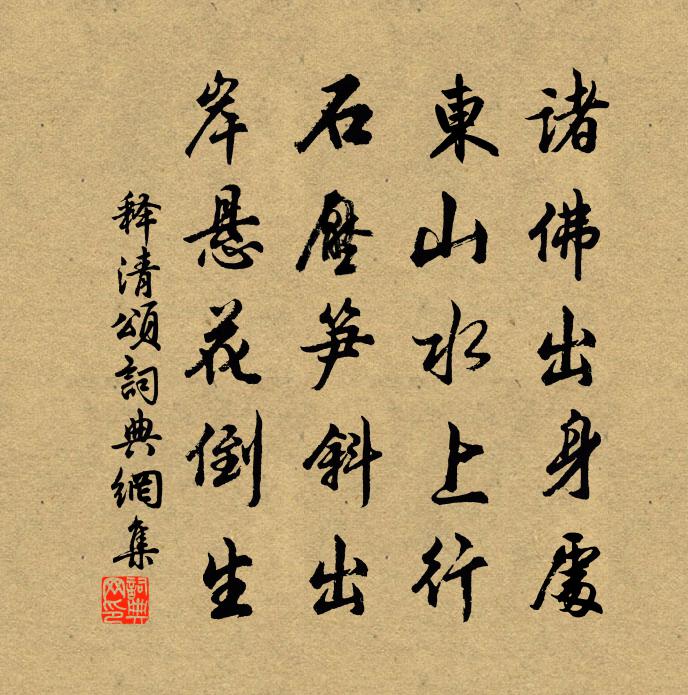 諸佛出身處
東山水上行
石壓笋斜出
岸悬花倒生
释清頌詞典網集
詞典